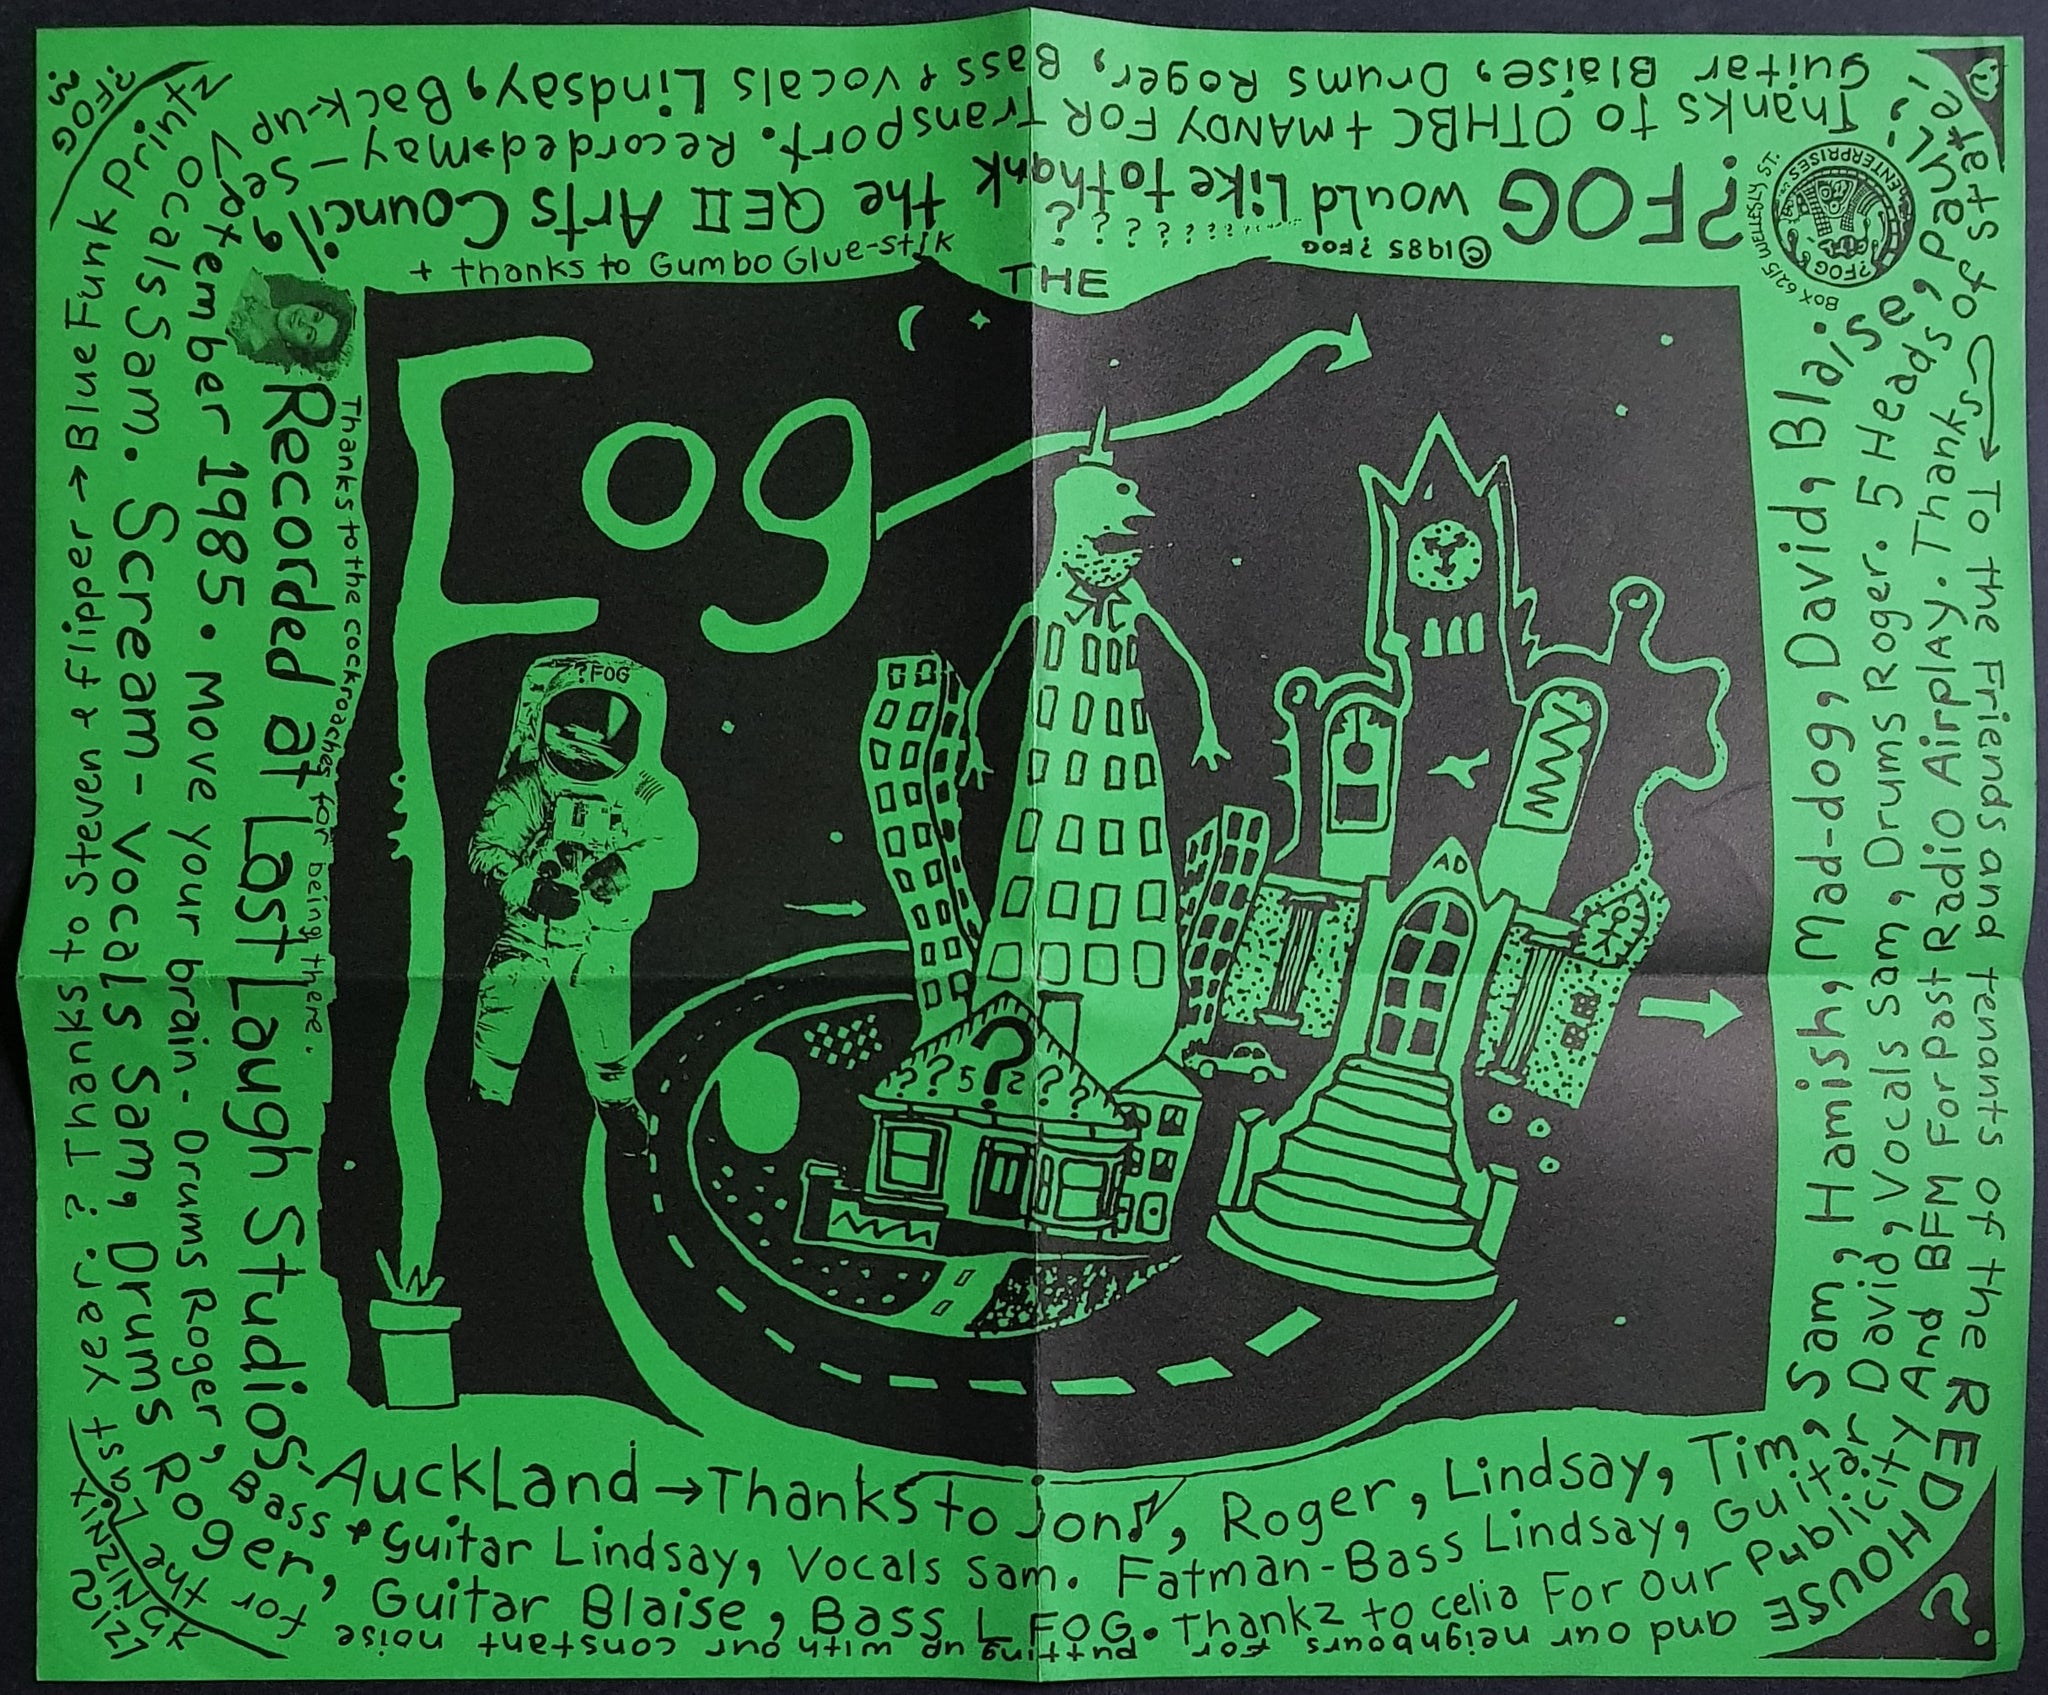 ?FOG would Like to thank the QEII Arts Council,
Recorded at Last Laugh Studios-
Auckland → Thanks to jon, Roger, Lindsay, Tim,
Sam, Hamish, Mad-dog, David, Blaise,
Paul.
Thanks to OTHBC + MANDY FOR Transport. Recorded → May - September 1985. Move your brain - Drums Roger, Bass & guitar Lindsay, Vocals Sam. Fatman-Bass Lindsay, Guitar David, Vocals Sam, Drums Roger. 5 Heads, Paul:
Guitar Blaise, Drums Roger, Bass & Vocals Lindsay, Back-up Vocals Sam. Scream - Vocals Sam, Drums Roger, Guitar Blaise, Bass L FOG. Thankz to celia For our Publicity And BFM For past Radio Airplay. Thanks
To the Friends and tenants of the REDHOUSE and our neighbours for putting up with our constant noise for the Last year. ? Thanks to Steven & flipper → Blue Funk
+ thanks to Gumbo Glue-stik
Thanks to the cockroaches for being there.
©1985 ?FOG
?FOG
ENTERPRISES
BOX 6215 WELLESLY ST.
?FOG
THE
Fog
?FOG
AD
? ? 5 ? 2 ? ?
?